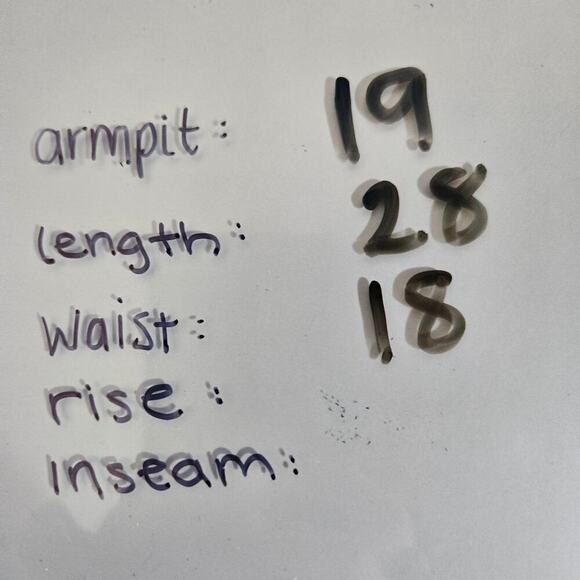 armpit: 19
length: 28
waist: 18
rise:
inseam: